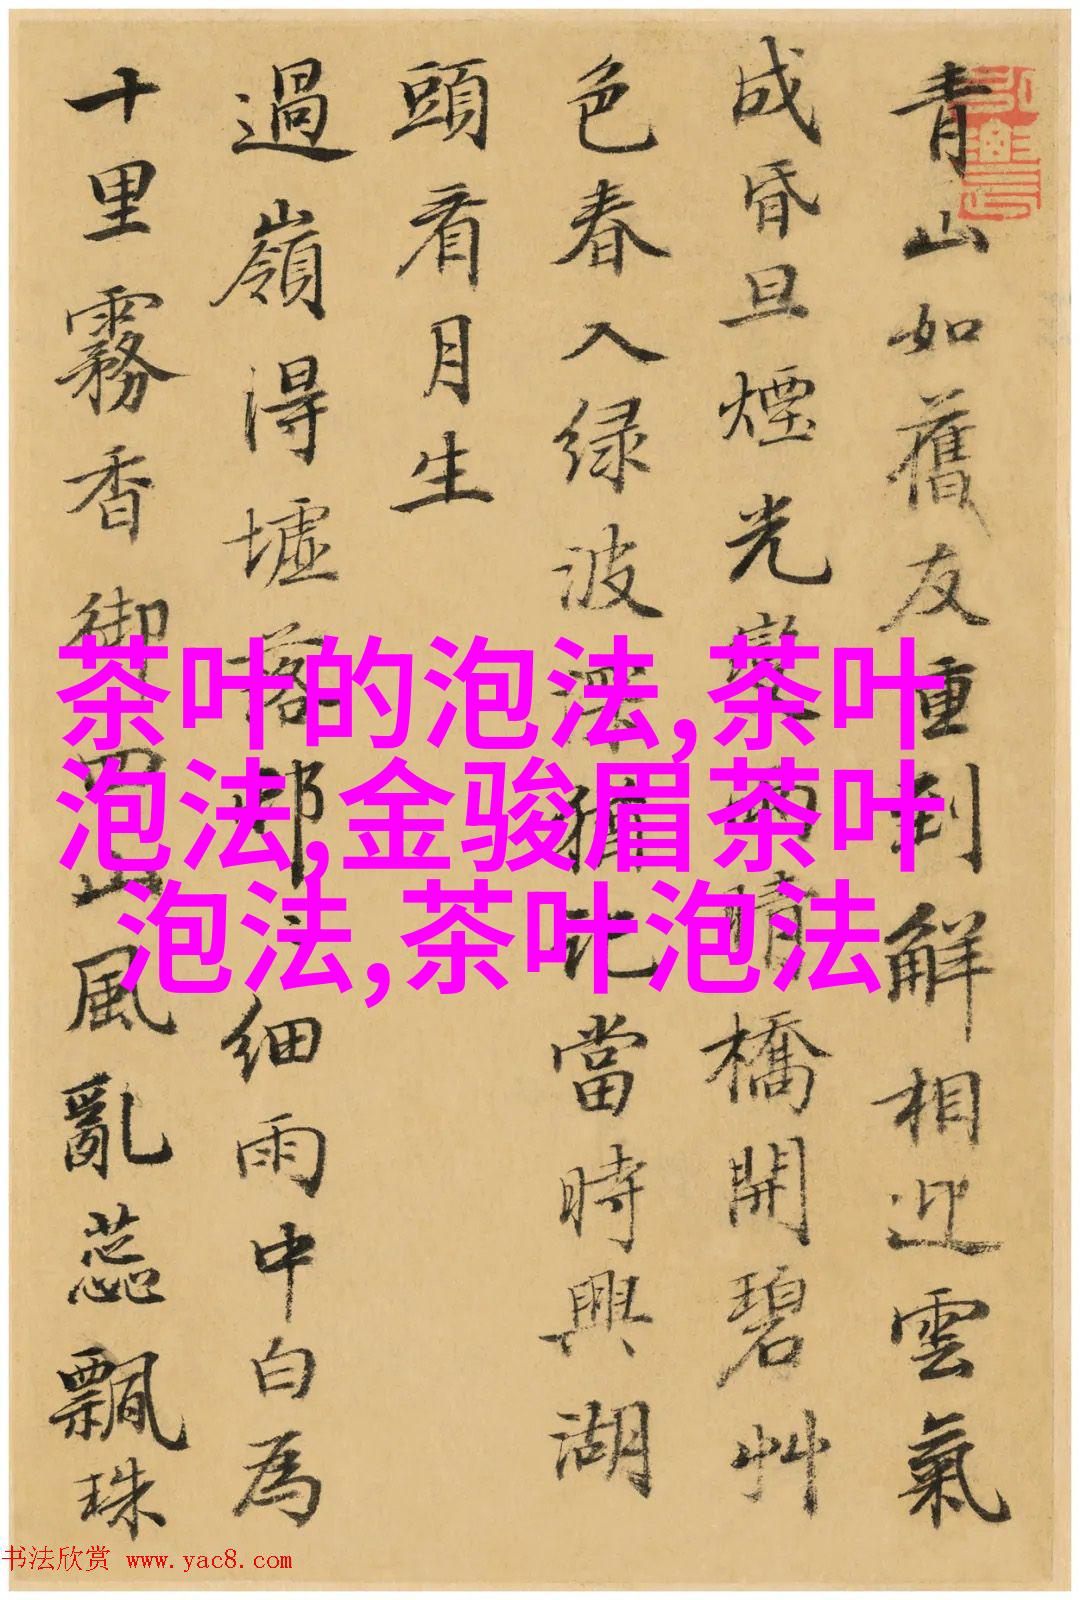 青山如舊友重到解相迎雲氣
成昏旦煙光變雨晴橋開碧艸
色春入绿波猶記當時興湖
頭看月生
過嶺得墟落邨細雨中白為
十里霧香御四山風亂蕊飄珠
茶叶的泡法,茶叶
泡法,金骏眉茶叶
泡法,茶叶泡法
书法欣赏 www.yac8.com